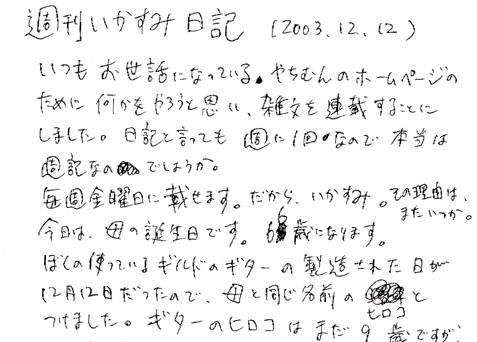 週刊いかすみ日記 (2003.12.12)
いつもお世話になっている。やちむんのホームページの
ために何かをやろうと思い、雑文を連載することに
しました。日記と言っても週に1回なので本当は
週記なのでしょうか。
毎週金曜日に載せます。だから、いかすみ。その理由は、
またいつか。
今日は、母の誕生日です。歳になります。
ぼくの使っているギルドのギターの製造された日が
12月12日だったので、母と同じ名前のヒロコと
つけました。ギターのヒロコはまだ9歳ですが、